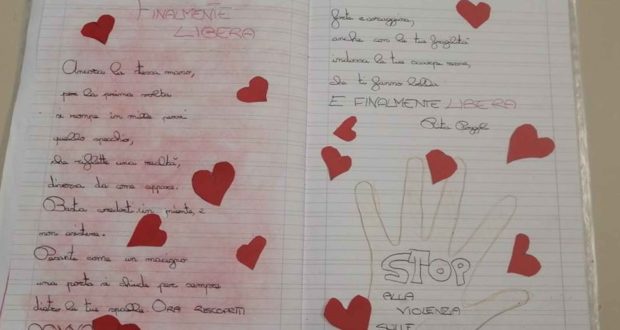 FINALMENTE
LIBERA
Ancora la stessa mano,
per la prima volta
si rompe in mille pezzi
quello specchio,
che riflette una realtà,
diversa da come appare.
Basta crederti un niente, e
non esistere.
Pesante come un macigno
una porta si chiude per sempre
dietro le tue spalle. ORA RISCOPRITI
DONNA
forte e coraggiosa,
anche con le tue fragilità
indossa le tue scarpe rosse,
che ti fanno bella
E FINALMENTE LIBERA
STOP
ALLA
VIOLENZA
SULLE